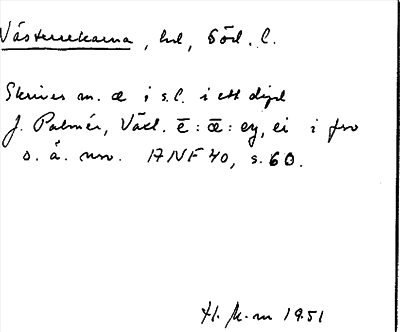 Västerrekarna, hd, Södl.
Skrives m. æ i s.l. i ett dipl
J. Palmér, Växl. ē : ǣ : ey, ei i fno
o. ä. nno. ANF 40, s. 60.
H. M-m 1951